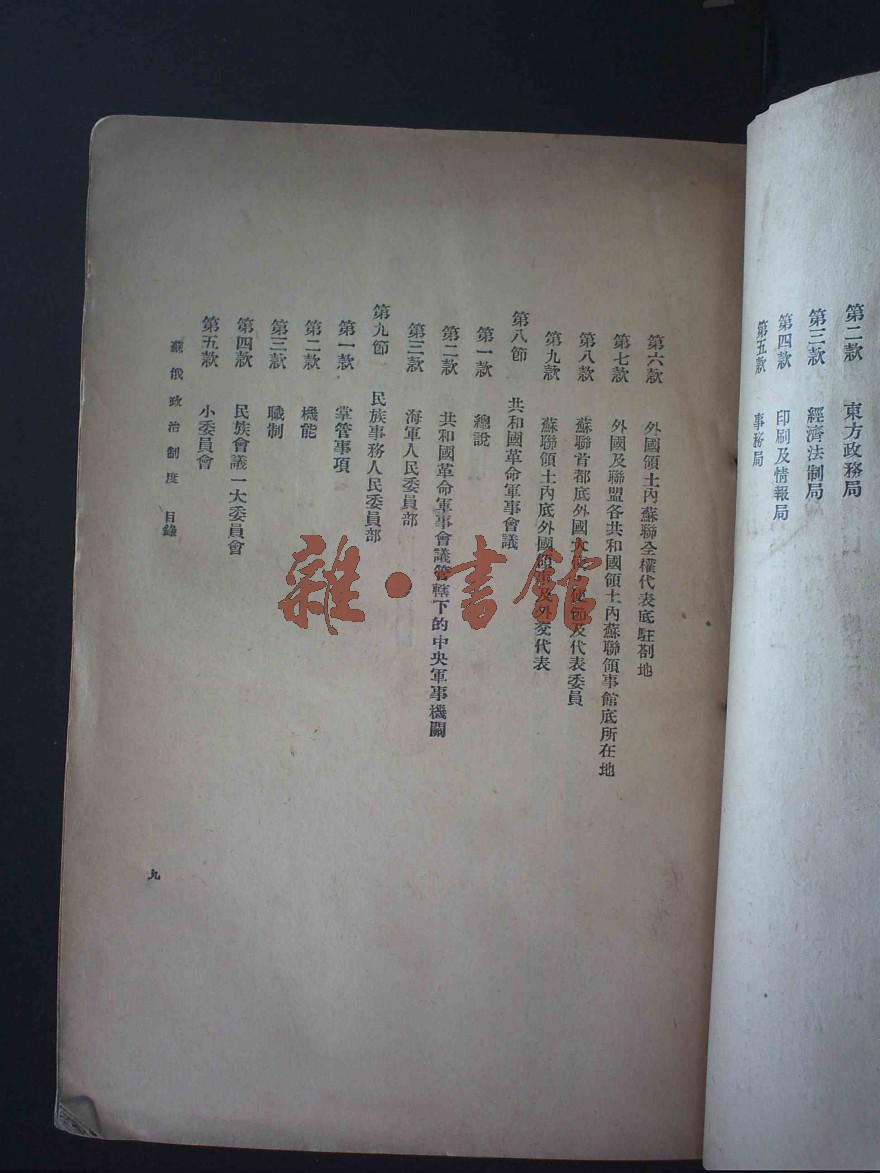 第二款 東方政務局
第三款 經濟法制局
第四款 印刷及情報局
第五款 事務局
第六款 外國領土內蘇聯全權代表底駐劄地
第七款 外國及聯盟各共和國領土內蘇聯領事館底所在地
第八款 蘇聯首都底外國大使節及代表委員
第九款 蘇聯領土內底外國領事及外交代表
第八節 共和國革命軍事會議
第一款 總說
第二款 共和國革命軍事會議管轄下的中央軍事機關
第三款 海軍人民委員部
第九節 民族事務人民委員部
第一款 掌管事項
第二款 機能
第三款 職制
第四款 民族會議一大委員會
第五款 小委員會
蘇俄政治制度 目錄
九
雜·書館